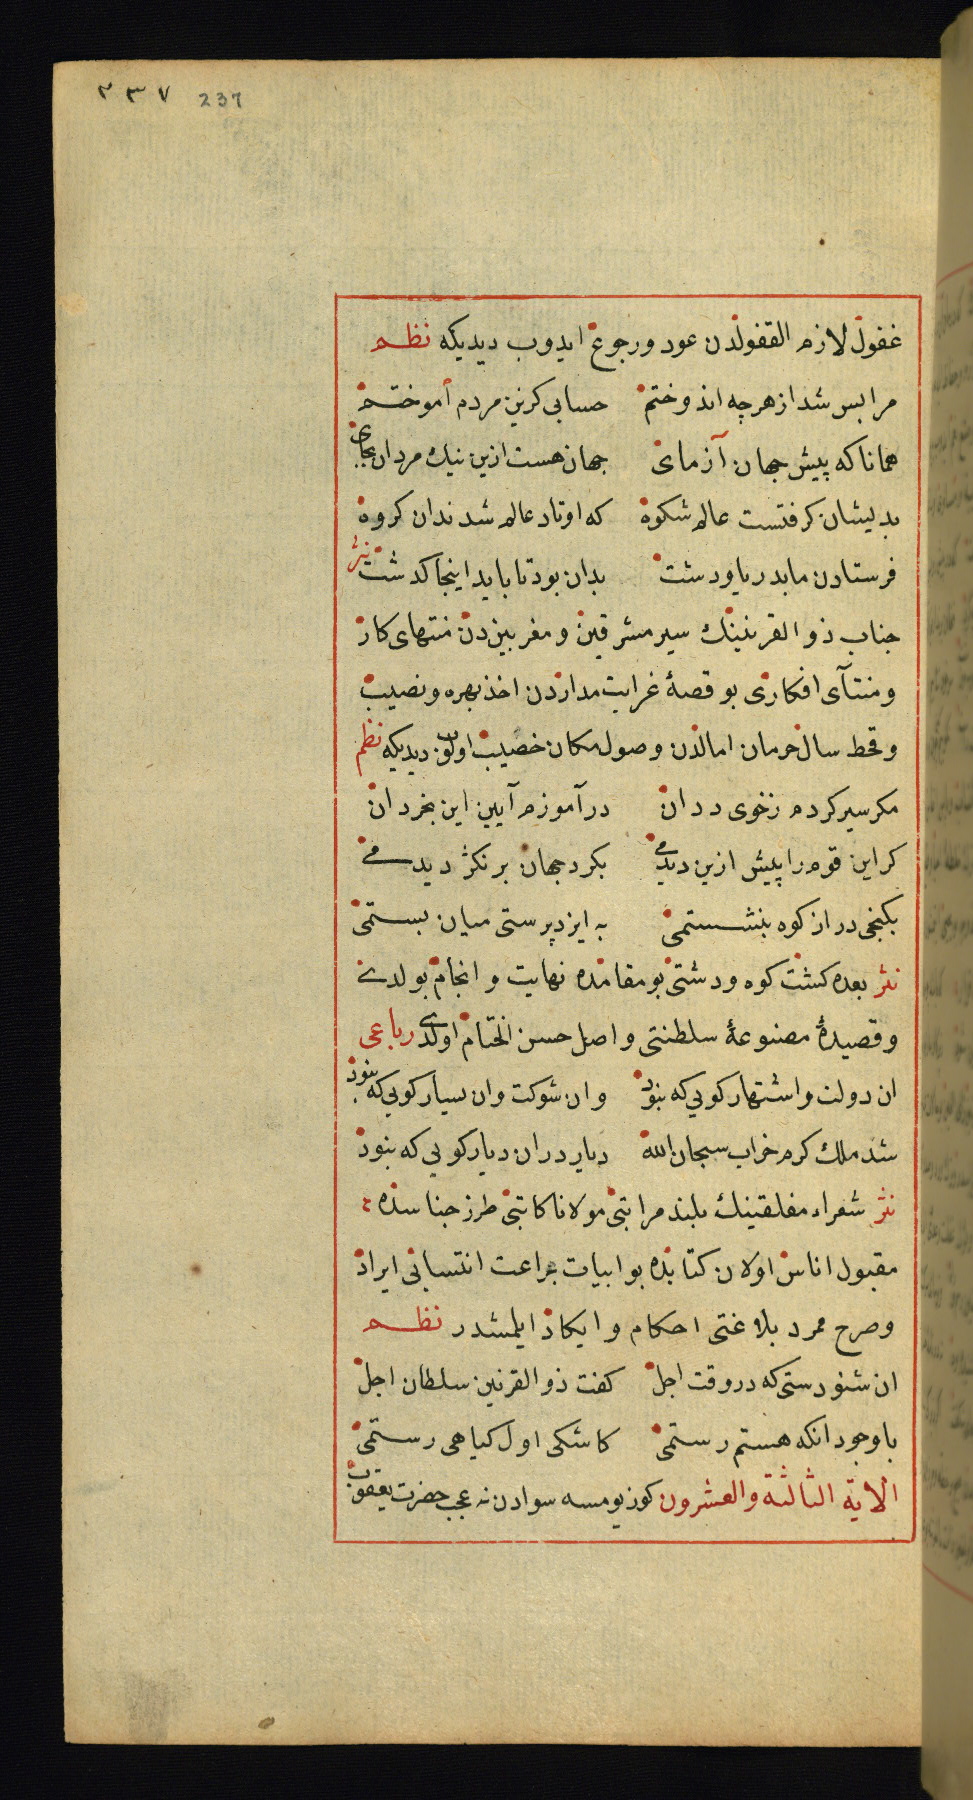 ٢٣٧ 237
غفول لازم القفولدن عود ورجوع ايدوب ديديكه نظم
مرابس شد از هرچه اندوختم حسابی کزین مردم آموختم
همانا که پیش جهان آزمای جهان هست ازین نیک مردان بجای
بدیشان کرفتست عالم شکوه که اوتاد عالم شدندان کروه
فرستادن مابدریاودشت بدان بود تا باید اینجا کدشت نثر
جناب ذو القرنینك سیر مشرقین ومغربیندن منتهای کار
ومنتآی افکاری بو قصهٔ غرایت مداردن اخذ بهره ونصیب
وقحط سال حرمان امالدن وصول مکان خصیب اولوب دیدیکه نظم
مکر سیر کردم زخوی ددان در آموزم آیین این بخردان
کر این قوم را پیش ازین دیدمی بکرد جهان بر نکردیدمی
بکنجی در از کوه بنشستمی به ایزد پرستی میان بستمی
نثر بعده کشت کوه ودشتی بو مقامده نهایت وانجام بولدی
وقصیدهٔ مصنوعهٔ سلطنتی واصل حسن اختتام اولدی رباعی
ان دولت واشتهار کویی که نبود وان شوکت وان سیار کویی که نبود
شد ملك کرم خراب سبحان الله دیار دران دیار کویی که نبود
نثر شعراء مفلقینك بلند مراتبی مولانا کاتبی طرز جناسده
مقبول اناس اولان کتابنده بو ابیات براعت انتسابی ایراد
وصرح ممرد بلاغتی احکام وایکاد ایلمشدر نظم
ان شنودستی که در وقت اجل کفت ذو القرنین سلطان اجل
باوجود انکه هستم رستمی کاشکی اول کیاهی رستمی
الاية الثالثة والعشرون کوز یومسه سوادن نه عجب حضرت یعقوب